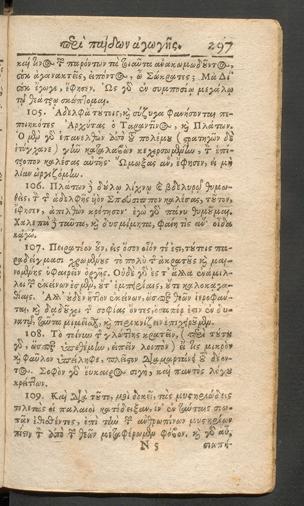 περὶ παίδων ἀγωγῆς. 297
καί τινος τῶν παρόντων τὰ τοιαῦτα ἀνακωμῳδοῦντος,
οὐκ ἀγανακτεῖς, εἰπόντος, ὦ Σώκρατες; Μὰ Δί᾽
οὐκ ἔγωγε, ἔφησεν. Ὡς γὰρ ἐν συμποσίῳ μεγάλῳ
τῷ θεάτρῳ σκώπτομαι.
105. Ἀδελφὰ τούτοις, καὶ σύζυγα φανήσονται πε-
ποιηκότες Ἀρχύτας ὁ Ταραντῖνος, καὶ Πλάτων.
Ὁ μὲν γὰρ ἐπανελθὼν ἀπὸ τοῦ πολέμου (στρατηγῶν δὲ
ἐτύγχανε) γῆν καταλαβὼν κεχερσωμένην, τὸν ἐπί-
τροπον καλέσας αὐτῆς· Ὤμωξας ἂν, ἔφησεν, εἰ μὴ
λίαν ὠργιζόμην.
106. Πλάτων δὲ δούλῳ λίχνῳ καὶ βδελυρῷ θυμω-
θεὶς, τὸν τῆς ἀδελφῆς υἱὸν Σπεύσιππον καλέσας, τοῦτον,
ἔφησεν, ἀπελθὼν κρότησον· ἐγὼ γὰρ πάνυ θυμοῦμαι.
Χαλεπὰ δὲ ταῦτα, καὶ δυσμίμητα, φαίη τις ἄν. οἶδα
κἀγώ.
107. Πειρατέον οὖν, εἰς ὅσον οἷόν τέ ἐστι, τούτοις πα-
ραδείγμασι χρωμένους τὸ πολὺ τῆς ἀκρατοῦς καὶ μαι-
νομένης ὑφαιρεῖν ὀργῆς. Οὐδὲ γὰρ εἰς τὰ ἄλλα ἐνάμιλ-
λοι τῶν ἐκείνων ἐσμὲν, οὔτ᾽ ἐμπειρίαις, οὔτε καλοκαγα-
θίαις. Ἀλλ᾽ οὐδὲν ἧττον ἐκείνων, ὥσπερ θεῶν ἱεροφάν-
ται, καὶ δᾳδοῦχοι τῆς σοφίας ὄντες, ὅσαπερ ἐστὶν ἐν δυ-
νατῷ, ταῦτα μιμεῖσθαι, καὶ περικνίζειν ἐπιχειροῦμεν.
108. Τὸ τοίνυν τῆς γλώττης κρατεῖν, (περὶ τούτου
γὰρ, ὥσπερ ὑπεθέμην, εἰπεῖν λοιπὸν) εἴ τις μικρὸν
καὶ φαῦλον ὑπείληφε, πλεῖστον διαμαρτάνει τοῦ δέον-
τος. Σοφὸν γὰρ εὔκαιρος σιγὴ, καὶ παντὸς λόγου
κρεῖττον.
109. Καὶ διὰ τοῦτό μοι δοκεῖ τὰς μυστηριώδεις
τελετὰς οἱ παλαιοὶ κατέδειξαν, ἵν᾽ ἐν ταύταις σιω-
πᾶν ἐθισθέντες, ἐπὶ τὴν τῶν ἀνθρωπίνων μυστηρίων
πίστιν τὸν ἀπὸ τῶν θεῶν μεταφέρωμεν φόβον. καὶ γὰρ αὖ,
N 5 σιωπή-